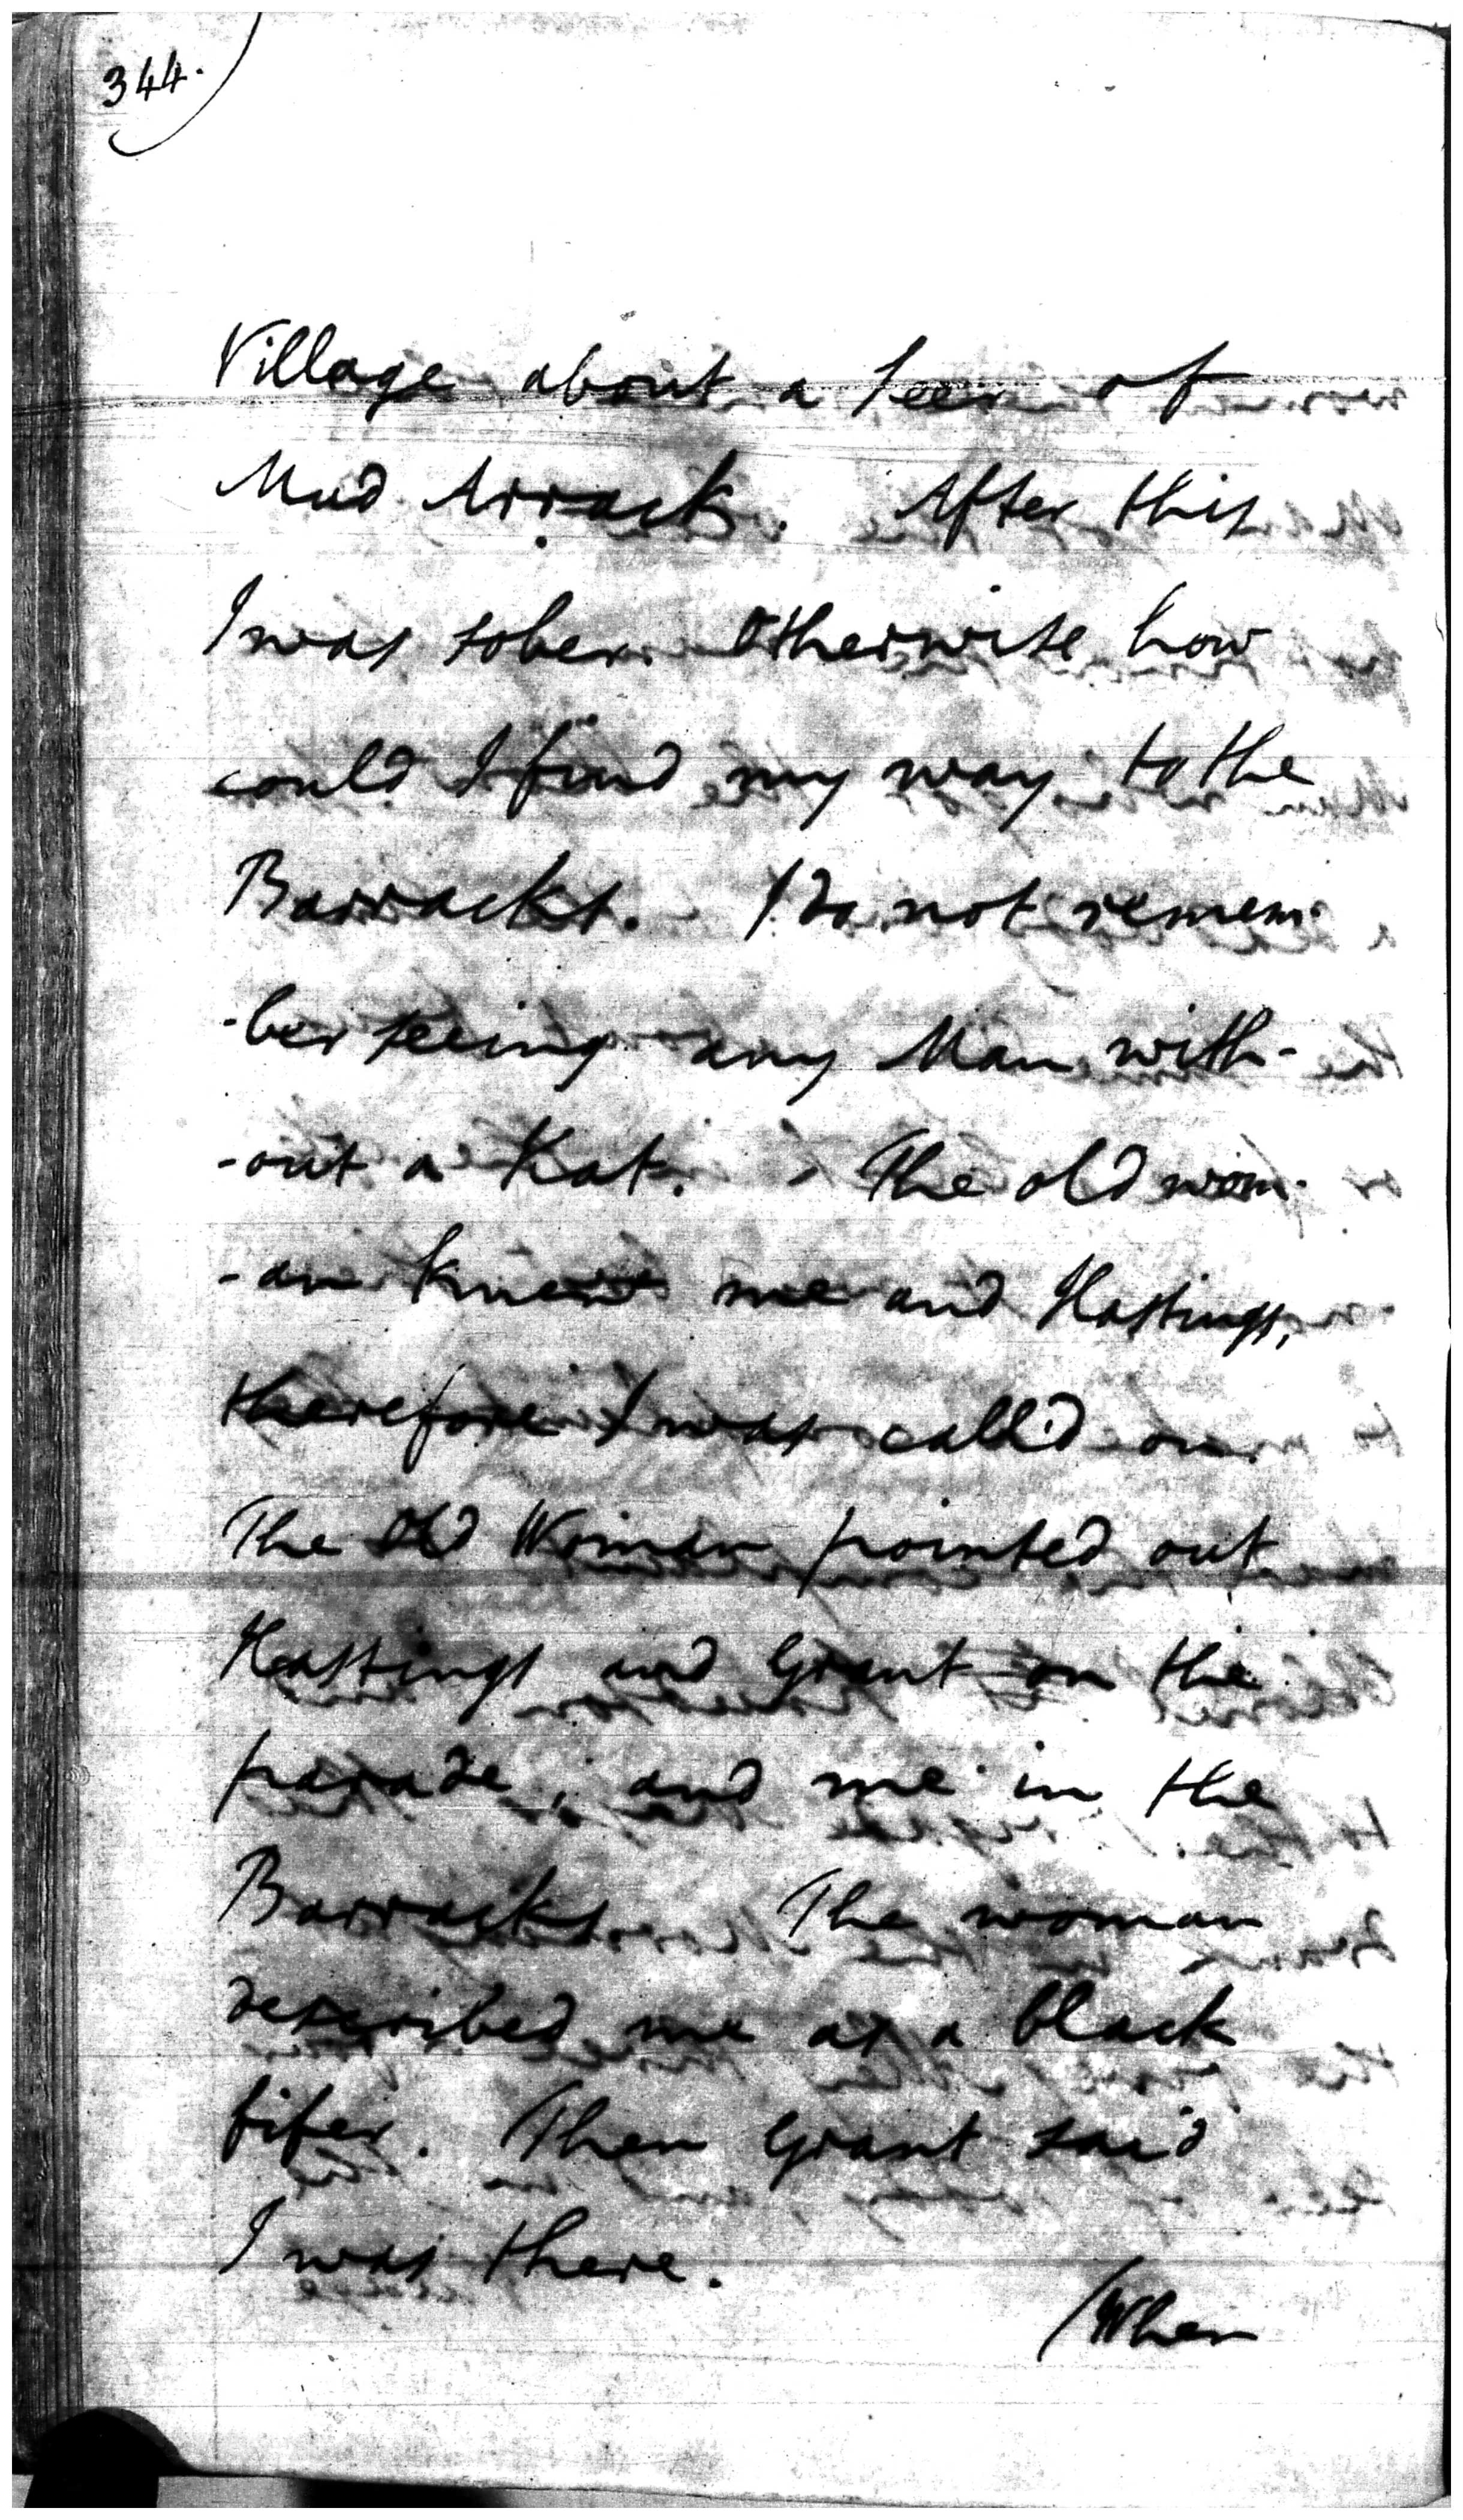 344.
Village about a Seer of
Mud Arrack. After this
I was sober. Otherwise how
could I find my way to the
Barracks. I do not remem-
-ber seeing any Man with-
-out a Hat. The old wom-
-an knew me and Hastings,
therefore I was call'd on.
The Old Woman pointed out
Hastings and Grant on the
parade, and me in the
Barracks. The woman
described me as a black
fifer. Then Grant said
I was there.
/When